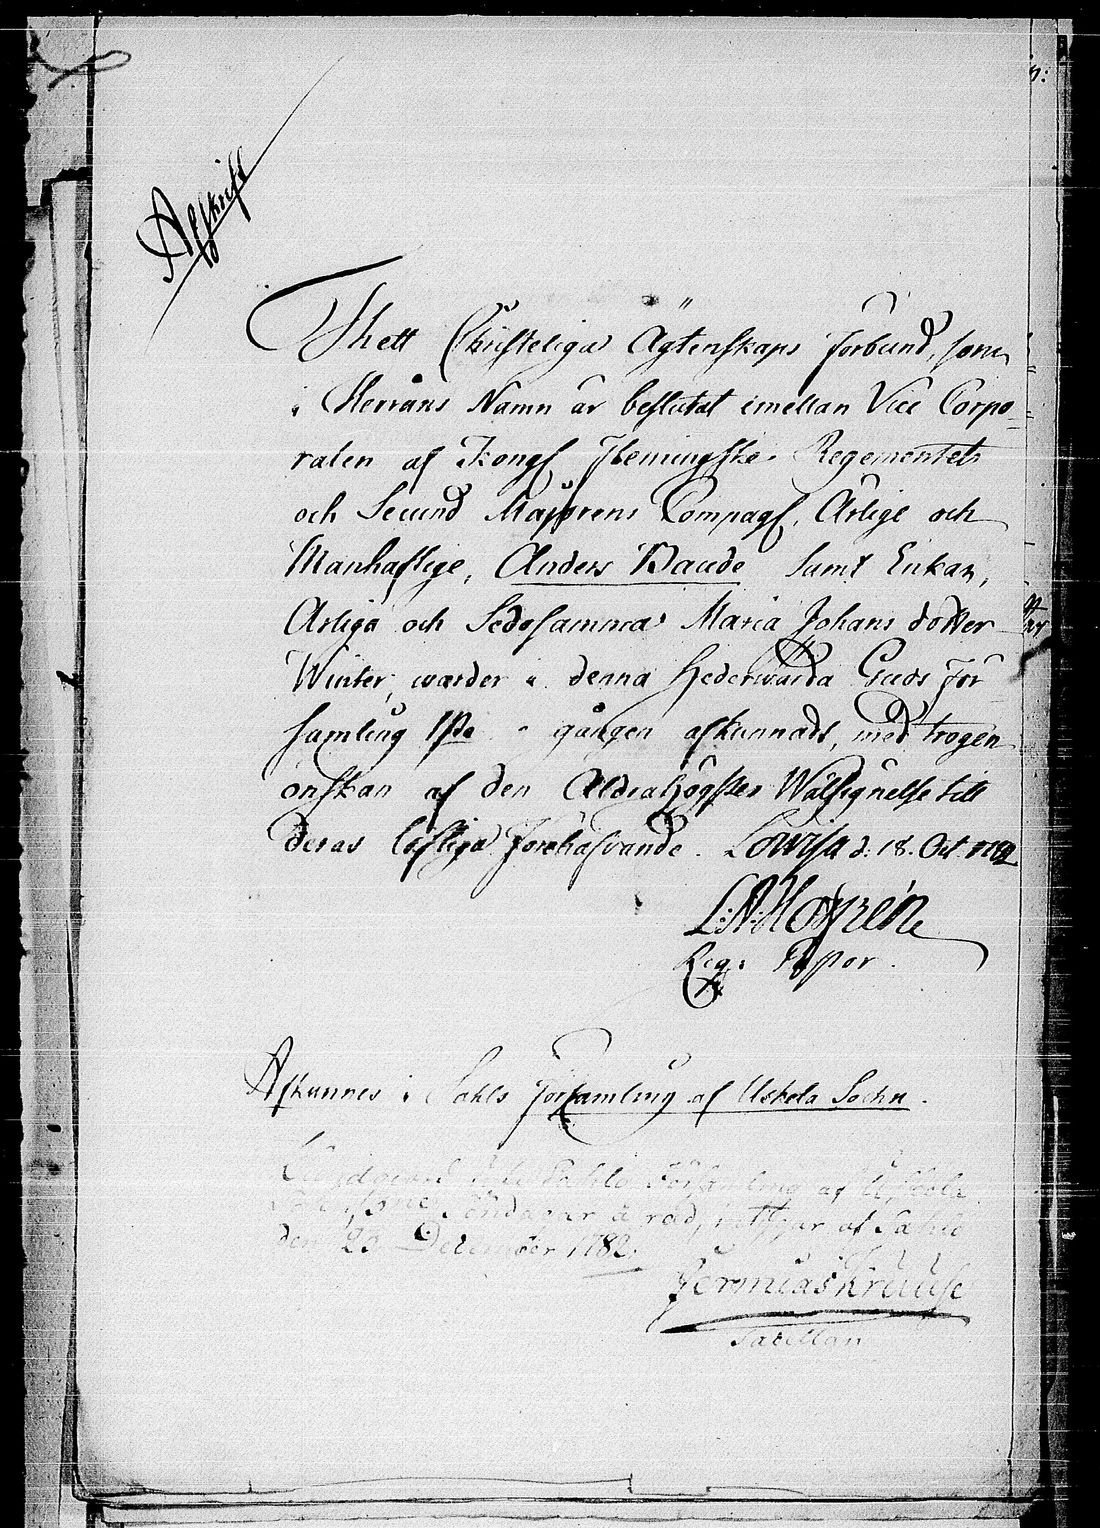 Afskrift
Thett Christeliga Ägtenskaps förbund, som
i Herrans Namn är beslutat emellan Vice Corpo-
ralen af Kongl Flemingske Regementets
och Secund Majorens Compagl, Ärlige och
Manhaftige, Anders Baude samt Enkan,
Ärliga och Sedosamma Maria Johans dotter
Winter, warder i denna Hederwärda Guds För
samling 1sta gången afkunnadt, med trogen
önskan af den Aldrahögstes Wälsignelse till
deras Christliga Förehafvande. Lovisa d: 18. Oct. 1782
Reg: Pastor.
Afkunnes i Sahls Församling af Uskela Sochn.
Sahlo Församling af Uskela
Söndagar å rad, af Sahlo
den 23 December 1782.
Jeremias Krause